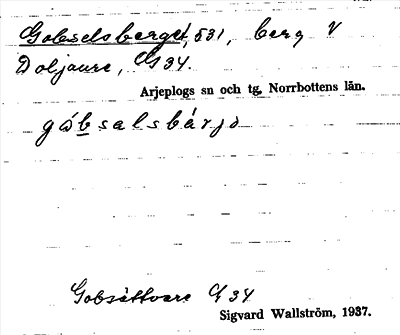 Gobselsberget, 531, berg V
Doljaure, G 34.
Arjeplogs sn och tg, Norrbottens län.
gåbsalsbárjo
Gobsåttvare G 34
Sigvard Wallström, 1937.